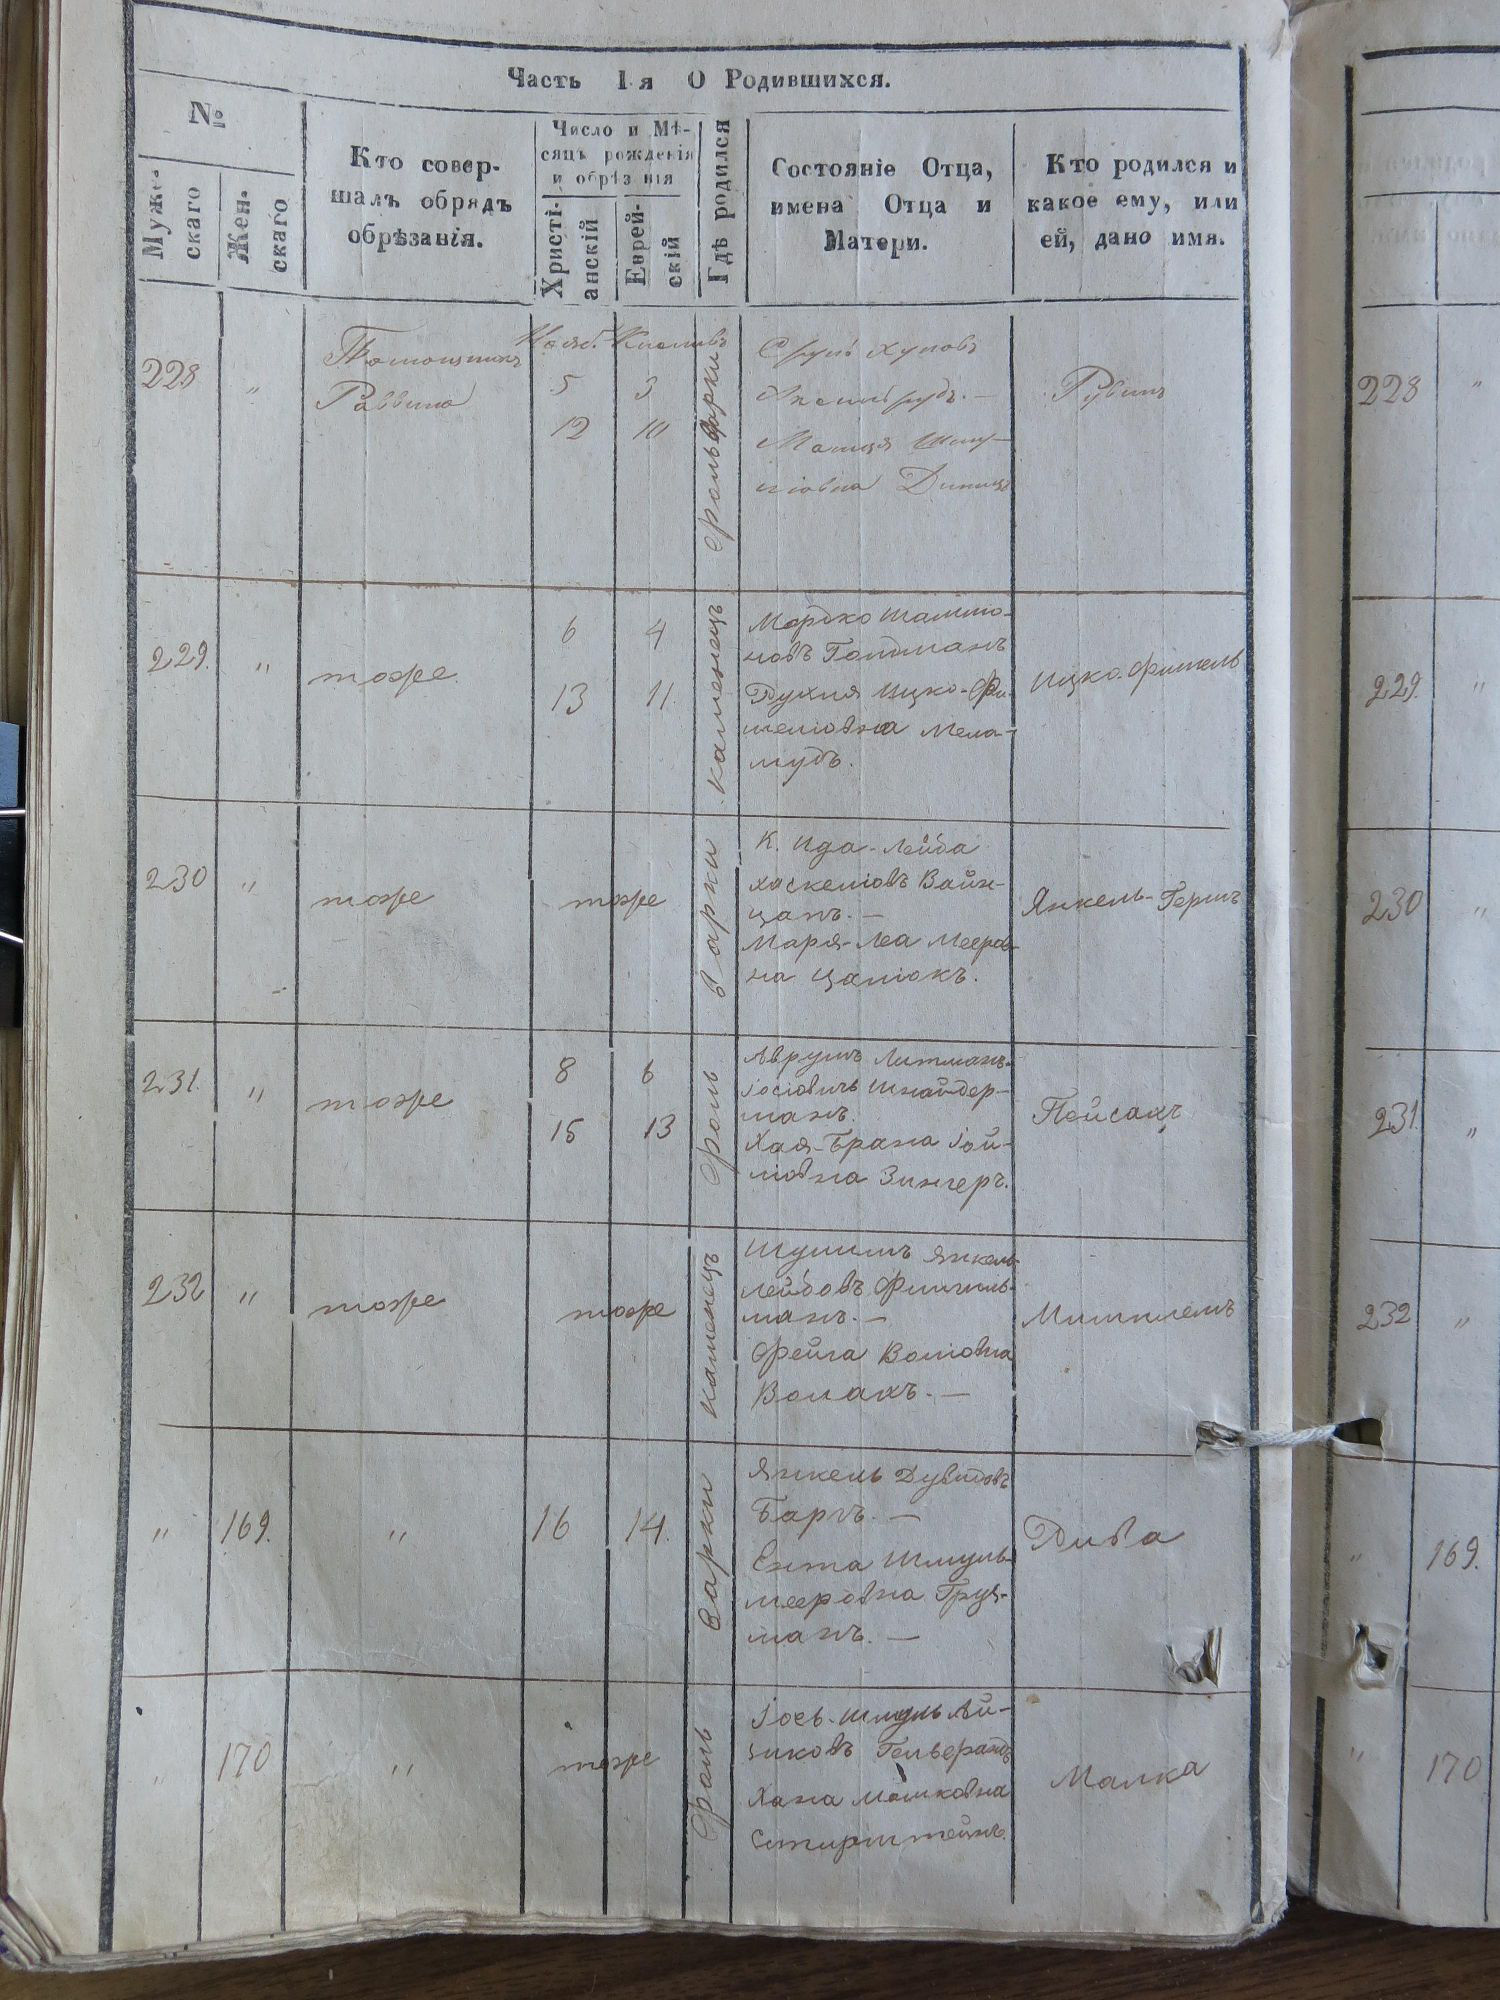 Часть 1-я О Родившихся.
№
Мужескаго
Женскаго
Кто совер-
шалъ обрядъ
обрѣзанія.
Число и Мѣ-
сяцъ рожденія
и обрѣзанія
Христі-
анскій
Еврей-
скій
Гдѣ родился
Состояніе Отца,
имена Отца и
Матери.
Кто родился и
какое ему, или
ей, дано имя.
228
"
Помощникъ
Раввина
Нояб. Кислевъ
5 3
12 10
Сруль
Рувинъ
229.
"
тоже
6 4
13 11
каменецъ
Мордко Шаммо-
новъ Гольдманъ
Рухля Ицко-Фи-
шелювна Мела-
мудъ.
Ицко-Фишель
230
"
тоже
тоже
барки
К. Ида-Лейба
Хаскелювъ Вайн-
цапъ. —
Маря-Леа Мееров-
на Цапюкъ.
Янкель-Гершъ
231.
"
тоже
8 6
15 13
Аврумъ Литманъ-
Іосіовичъ Шнайдер-
манъ.
Хая-Брана Іой-
ліовна Зингеръ.
Пейсахъ
232
"
тоже
тоже
каменецъ
Шулимъ Янкель-
Лейбовъ Фишиль-
манъ. —
Фейга Воліовна
Волахъ. —
"
169.
"
16 14.
барки
Янкель Дувидовъ
Баръ. —
Ента Шмуль-
мееровна Груз-
манъ. —
Рива
"
170
"
тоже
Іось-Шмуль Ай-
зиковъ Гельфандъ
Хана Мошковна
Штернштейнъ.
Малка
228
"
229.
"
230
"
231.
"
232
"
"
169.
"
170